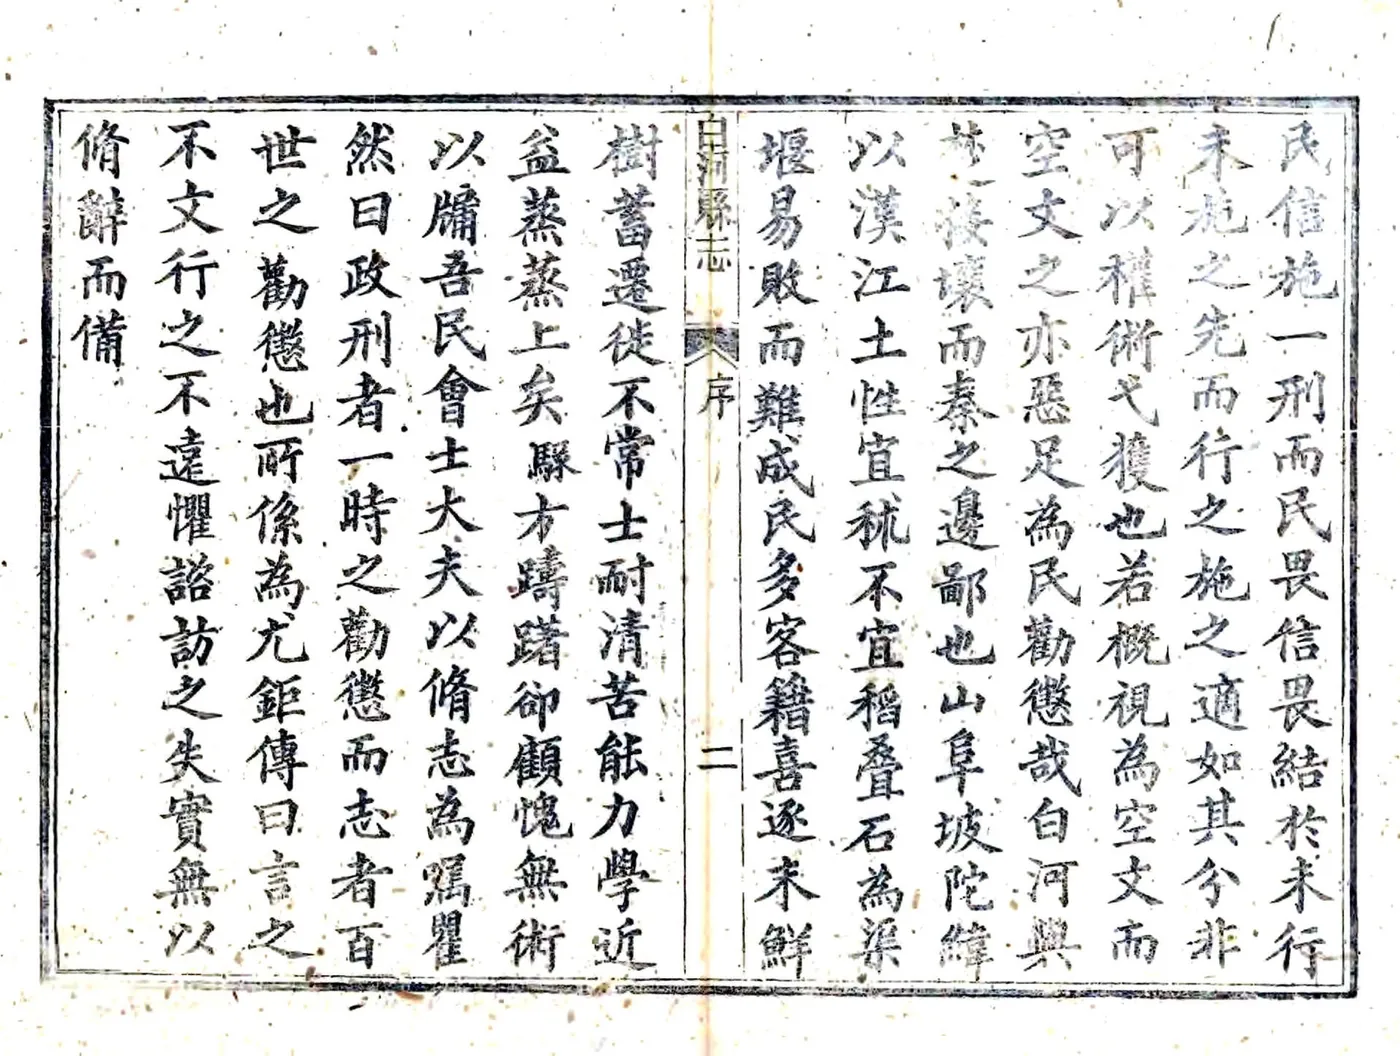 民信施一刑而民畏信畏結於未行
未施之先而行之施之適如其分非
可以權術弋獲也若概視為空文而
空文之亦惡足為民勸懲哉白河興
楚接壤而秦之邊鄙也山阜坡陀緯
以漢江土性宜秫不宜稻叠石為渠
堰易敗而難成民多客籍喜逐末鮮
白河縣志
序
二
樹蓄遷徙不常士耐清苦能力學近
益蒸蒸上矣騄才躊躇卻顧愧無術
以牖吾民會士大夫以脩志為囑瞿
然曰政刑者一時之勸懲而志者百
世之勸懲也所係為尤鉅傳曰言之
不文行之不遠懼諮訪之失實無以
脩辭而備